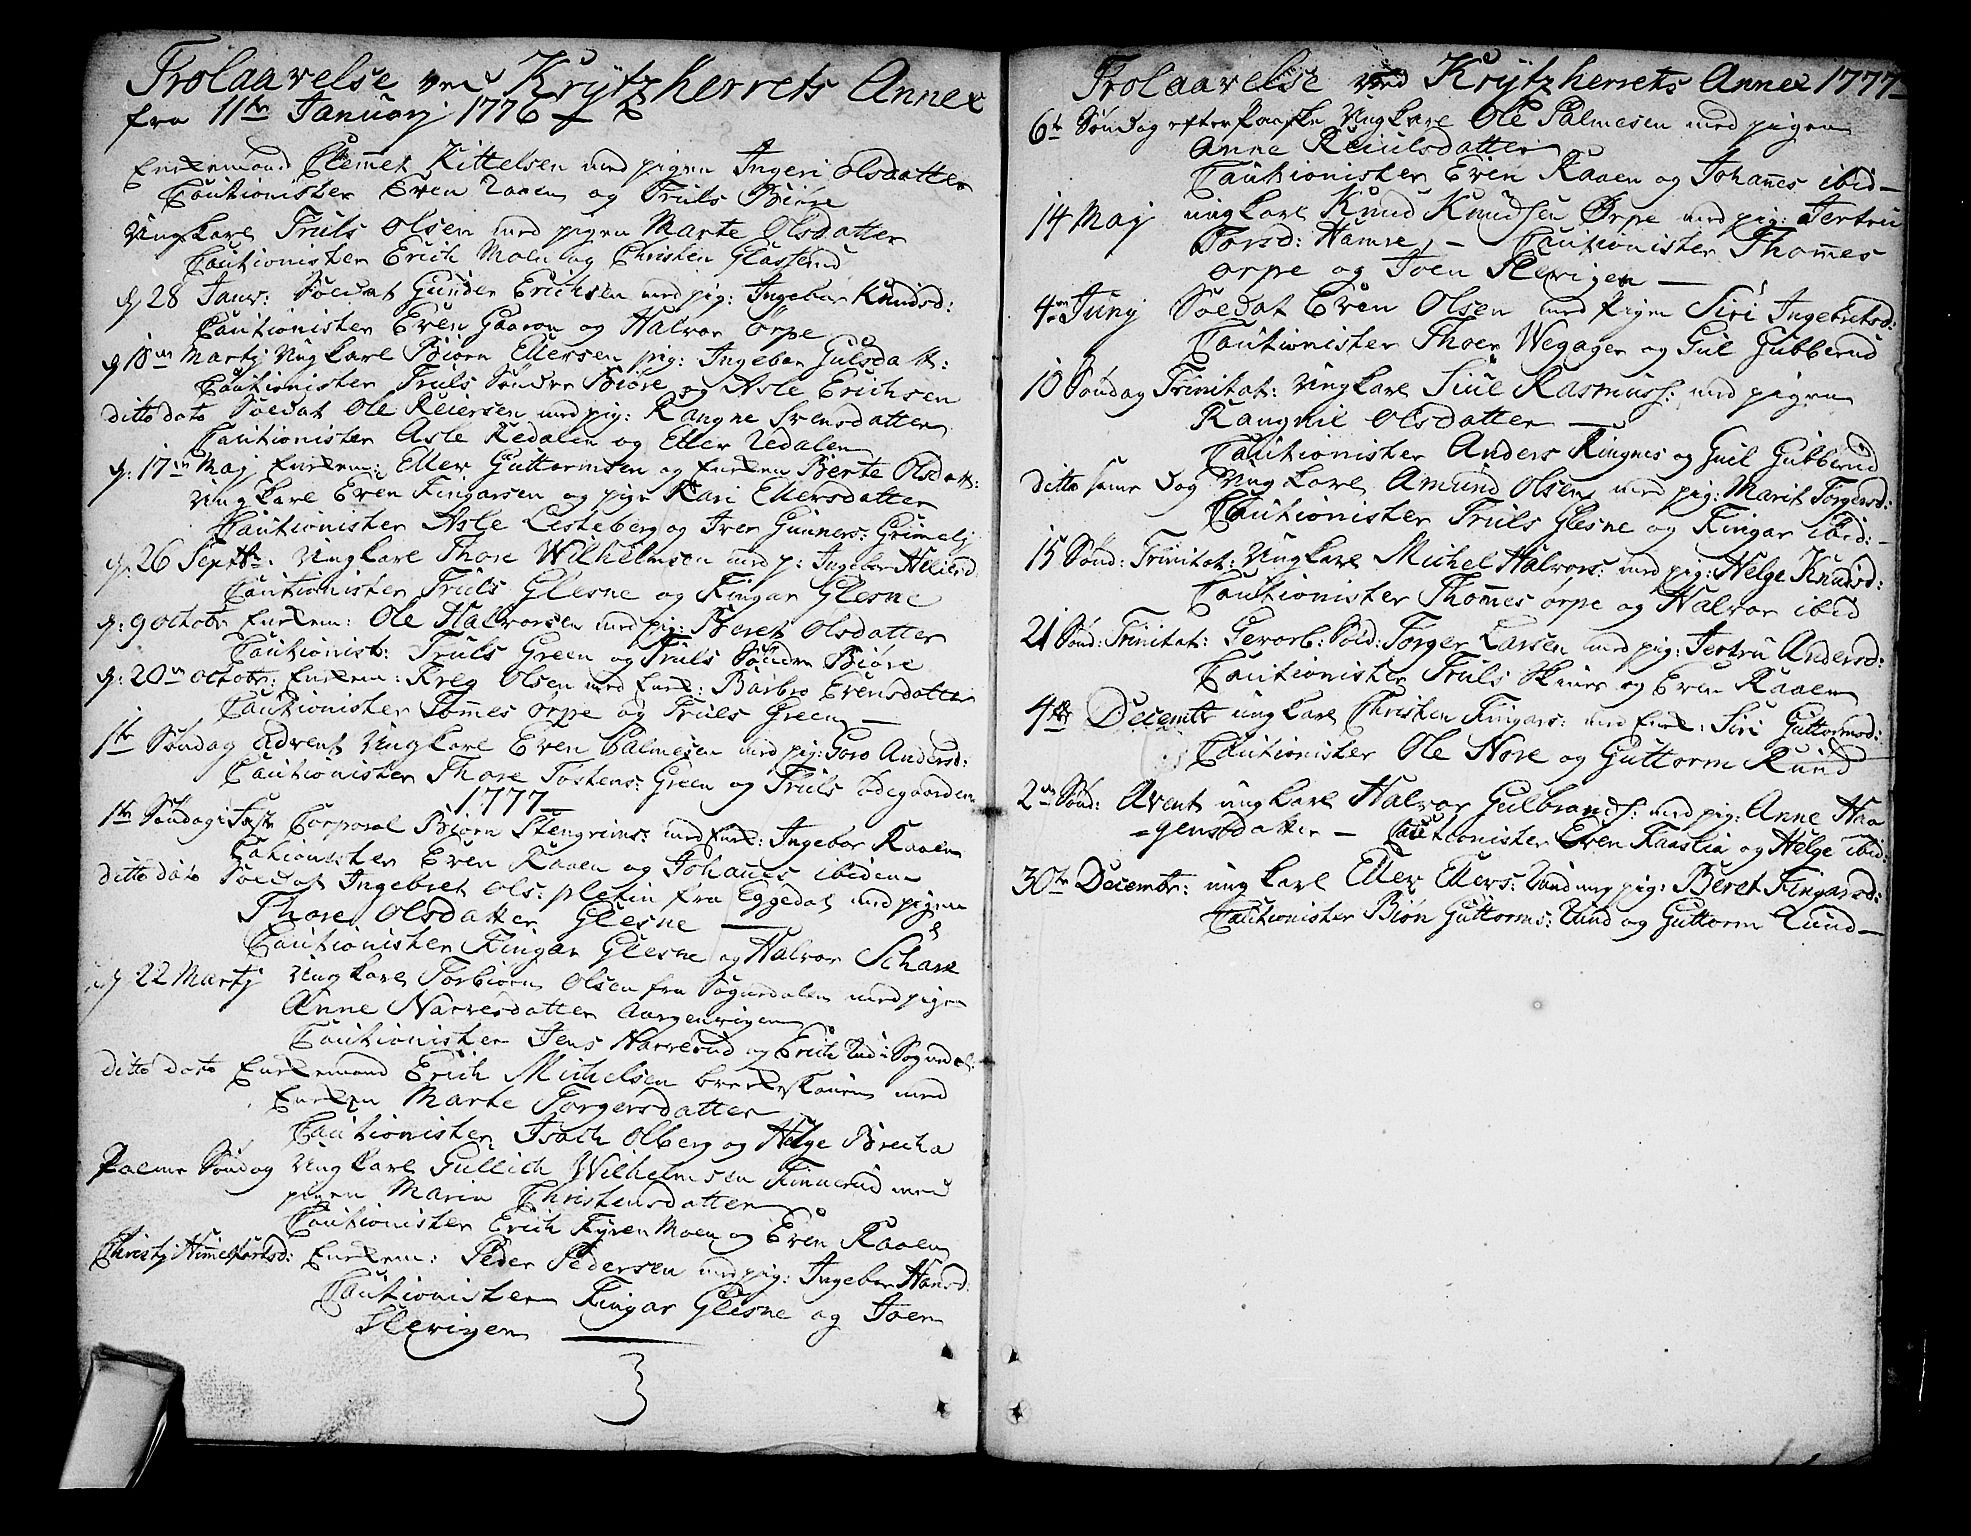 Trolaavelse ved Krytzherrets Annex
fra 11te Januarj 1776
Enkemand Clemmet Kittelsen med pigen Ingeri Olsdatter
Cautionister Even Raaen og Truls Biøre
Ung karl Truls Olsen med pigen Marte Olsdatter
Cautionister Erich Moen og Christen Glasserud
d 28 Janr: Soldat Gunder Erichsen med pig: Ingebor Knudsd:
Cautionister Even Gaaron og Halvor Orpe
d 18de Martj Ung karl Biørn Ellersen pig: Ingebor Gulsdatt:
Cautionister Truls Søndre Biøre og Asle Erichsen
ditto dato Soldat Ole Reiersen med pig: Rangne Svensdatter
Cautionister Asle Redalen og Eller Redalen
d: 17de Maj Enkem: Eller Guttormsen og Enken Berte Olsdatt:
Ung karl Even Fingarsen og pige Kari Ellersdatter
Cautionister Asle Lesteberg og Iver Gunners: Grimelj
d. 26 Septbr: Ung karl Thore Wilhelmsen med p: Ingebor
Cautionister Truls Glesne og Fingar Glesne
d: 9 octobr Enkem: Ole Halvorsen med pig: Beret Olsdatter
Cautionist: Truls Green og Truls Søndre Biøre
d: 20de octobr: Enkem: Kreg Olsen med Enk: Barbro Evensdatter
Cautionister Tommes Orpe og Truls Green
1te Søndag Advent Ung karl Even Palmesen med pig: Goro Andersd:
Cautionister Thore Tostens: Green og Truls Ødegaarden
1777
1te Søndag i Faste Corporal Biørn Stengrims: med Enk: Ingebor Raaen
Cationister Even Raaen og Johannes ibidem
ditto dato Soldat Ingebret Ols: pletin fra Eggedal med pigen
Thore Olsdatter Glesne
Cautionister Fingar Glesne og Halvor Schare
d 22 Martj Ung karl Torbiørn Olsen fra Sognedalen med pigen
Anne Narvesdatter
Cautionister Jens Narverud og Erich Rud i Sognedal:
ditto dato Enkemand Erich Michelsen med
Enken Marte Torgersdatter
Cautionister Isach Olberg og Helge Brecha
Palme Søndag Ung karl Gullich Wilhelmsen Finnerud med
pigen Marin Christensdatter
Cautionister Erich Fyren Moen og Even Raaen
Christj Himelfartsd: Enkem: Peder Pedersen med pig: Ingebor Hansd:
Cautionister Fingar Glesne og Joen
Slevigen
Trolaavelse ved Krytzherrets Annex 1777
6te Søndag efter Paaske Ung karl Ole Palmesen med pigen
Anne Reiulsdatter
Cautionister Even Raaen og Johannes ibid
14 Maj ung karl Knud Knudsen Ørpe med pig: Jertru
Torsd: Hamre, Cautionister Thommes
orpe og Joen Slevigen
4de Junj Soldat Even Olsen med pigen Siri Ingebretsd:
Cautionister Thoer Wegager og Gul Gubberud
10 Søndag Trinitat: Ung karl Siul Rasmuss: med pigen
Rangnil Olsdatter
Cautionister Anders Ringnes og Guil Gubberud
ditto same dag Ung karl Amund Olsen med pig: Marit Torgersd:
Cautionister Truls Glesne og Fingar ibid:
15 Sønd: Trinitat: Ung karl Michel Halvors: med pig: Helge Knudsd:
Cautionister Thommes orpe og Halvor ibid
21 Sønd: Trinitat: Gevorb: Sold: Torger Larsen med pig: Jertru Andersd:
Cautionister Truls Skinnes og Even Raaen
4de Decembr ung karl Christen Fingars: med Enk: Siri Guttormsd:
Cautionister Ole Nore og Guttorm Rund
2den Sønd: Avent ung karl Halvor Gulbrands: med pig: Anne Haa
=gensdatter Cautionister Even Kaaslia og Helge ibid:
30te Decembr: ung karl Eller Ellers: Rund ung pig: Beret Fingarsd:
Cautionister Biøn Guttorms: Rund og Guttorm Rund